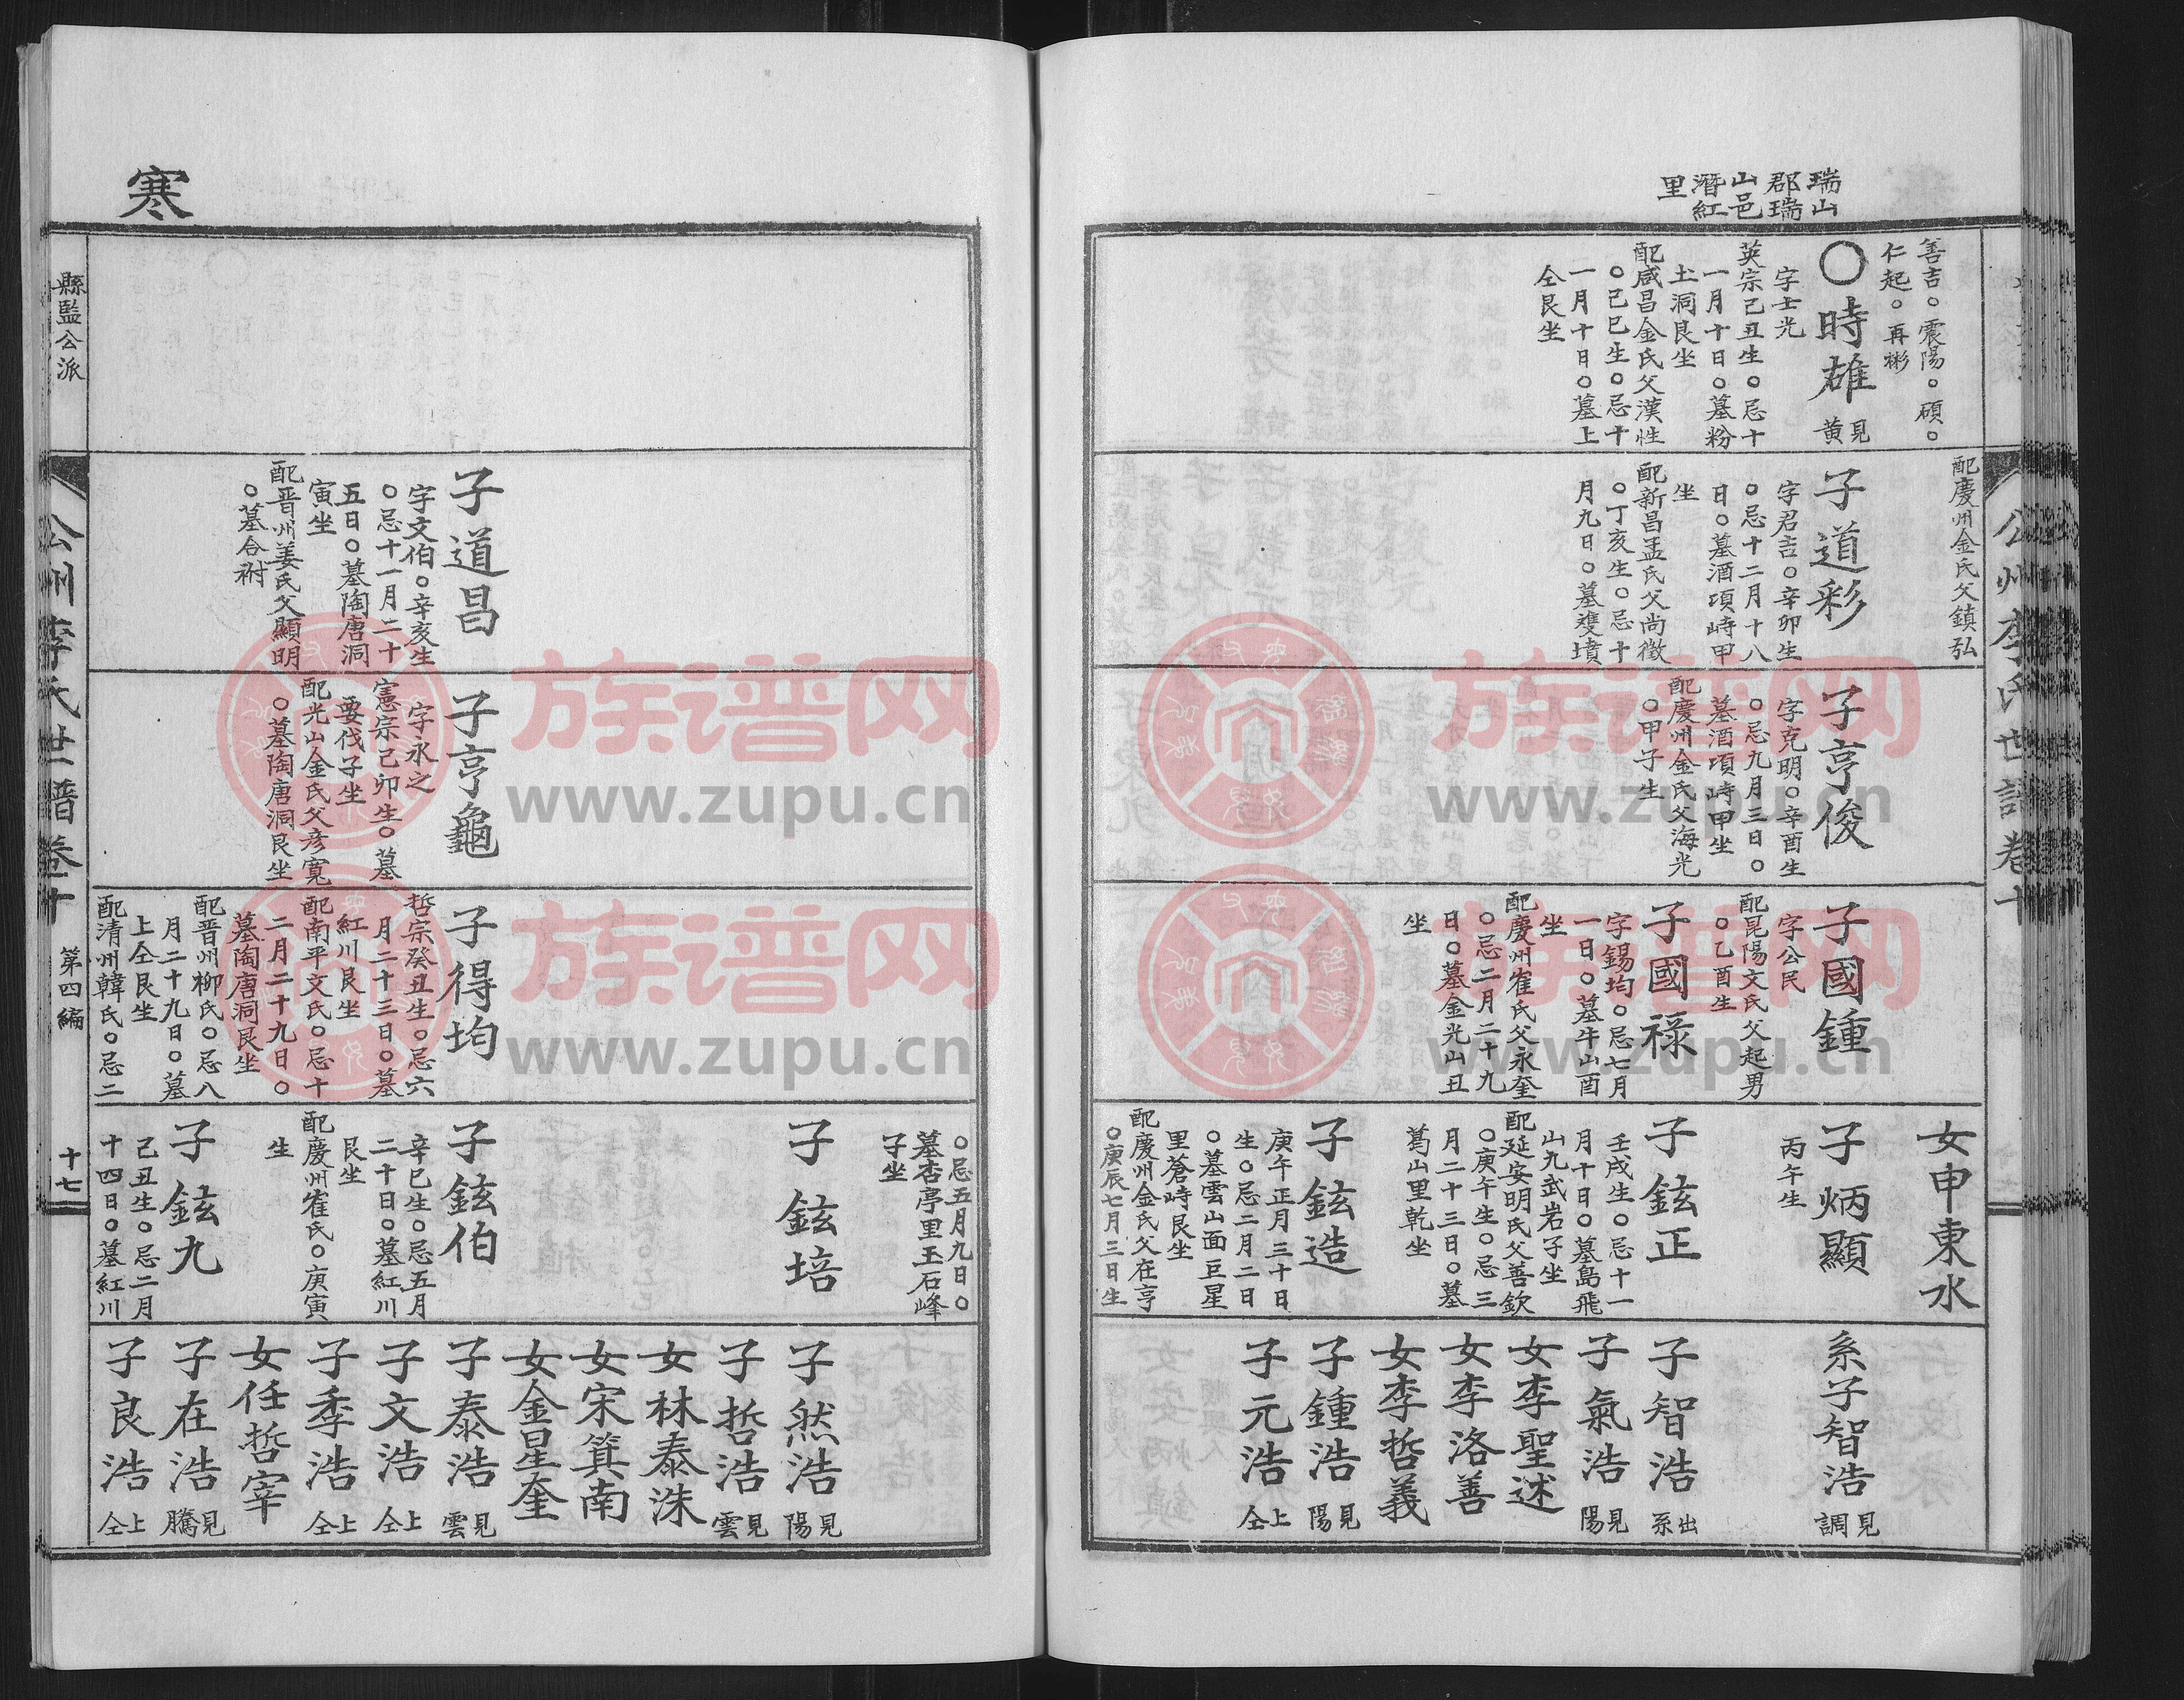 瑞山
郡瑞
山邑
潛紅
里
善吉○震陽○碩○
仁起○再彬
○時雄
見
黃
字士光
英宗己丑生○忌十
一月十日○墓粉
土洞艮坐
配咸昌金氏父漢性
○己巳生○忌十
一月十日○墓上
仝艮坐
配慶州金氏父鎮弘
子道彩
字君吉○辛卯生
○忌十二月十八
日○墓酒項峙甲
坐
配新昌孟氏父尚徵
○丁亥生○忌十
月九日○墓雙墳
子亨俊
字克明○辛酉生
○忌九月三日○
墓酒項峙甲坐
配慶州金氏父海光
○甲子生
子國鍾
字公民
配昆陽文氏父起男
○乙酉生
子國祿
字錫均○忌七月
一日○墓牛山酉
坐
配慶州崔氏父永奎
○忌二月二十九
日○墓金光山丑
坐
女申東水
子炳顯
丙午生
子鉉正
壬戌生○忌十一
月十日○墓島飛
山九武岩子坐
配延安明氏父善欽
○庚午生○忌三
月二十三日○墓
葛山里乾坐
子鉉造
庚午正月三十日
生○忌二月二日
○墓雲山面巨星
里蒼峙艮坐
配慶州金氏父在亨
○庚辰七月三日生
系子智浩
見
調
子智浩
出
系
子氣浩
見
陽
女李聖述
女李洛善
女李哲義
子鍾浩
見
陽
子元浩
上
仝
公州李氏世譜卷十
寒
子道昌
字文伯○辛亥生
○忌十一月二十
五日○墓陶唐洞
寅坐
配晋州姜氏父顯明
○墓合祔
子亨龜
字永之
憲宗己卯生○墓
要伐子坐
配光山金氏父彦寬
○墓陶唐洞艮坐
子得均
哲宗癸丑生○忌六
月二十三日○墓
紅川艮坐
配南平文氏○忌十
二月二十九日○
墓陶唐洞艮坐
配晋州柳氏○忌八
月二十九日○墓
上仝艮坐
配清州韓氏○忌二
○忌五月九日○
墓杏亭里玉石峰
子坐
子鉉培
子鉉伯
辛巳生○忌五月
二十日○墓紅川
艮坐
配慶州崔氏○庚寅
生
子鉉九
己丑生○忌二月
十四日○墓紅川
子然浩
見
陽
子哲浩
見
雲
女林泰洙
女宋箕南
女金星奎
子泰浩
見
雲
子文浩
上
仝
子季浩
上
仝
女任哲宰
子在浩
見
騰
子良浩
上
仝
縣監公派
公州李氏世譜卷十
第四編
十七
族谱网
www.zupu.cn
族谱网
www.zupu.cn
族谱网
www.zupu.cn
族谱网
www.zupu.cn